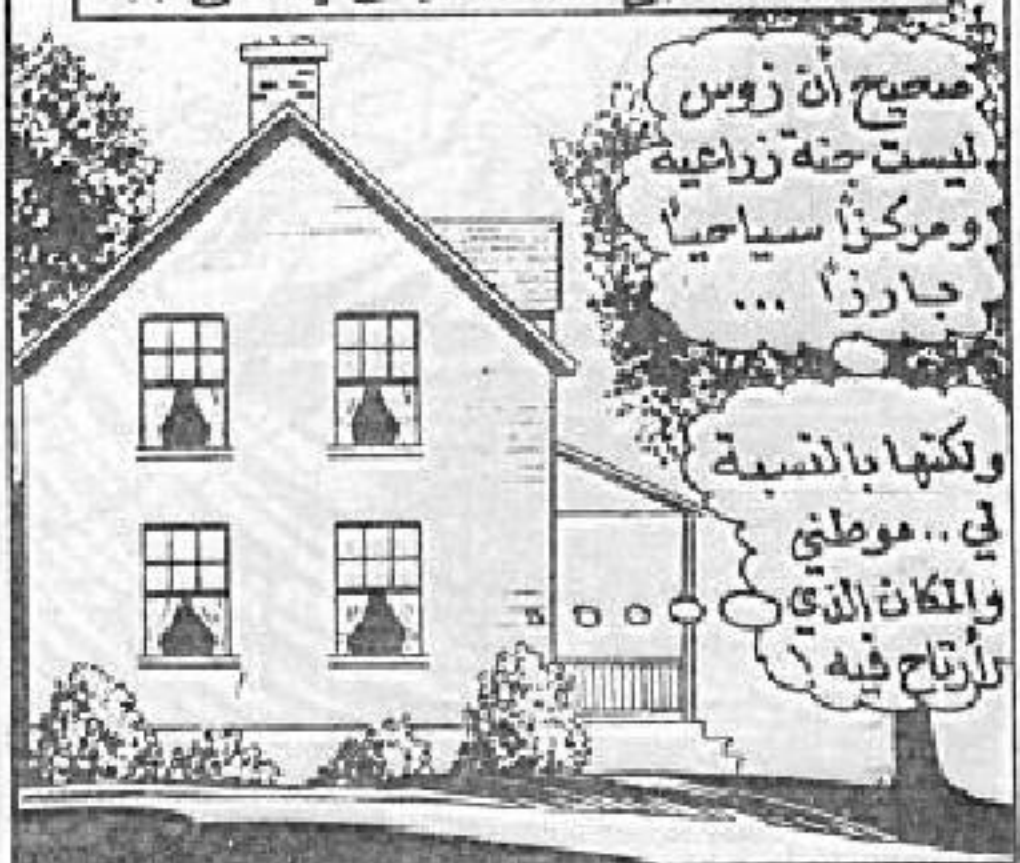 صحيح أن زوس
ليست جنة زراعية
ومركزاً سياحياً
بارزاً ...
ولكنها بالنسبة
لي .. موطني
والمكان الذي
أرتاح فيه !